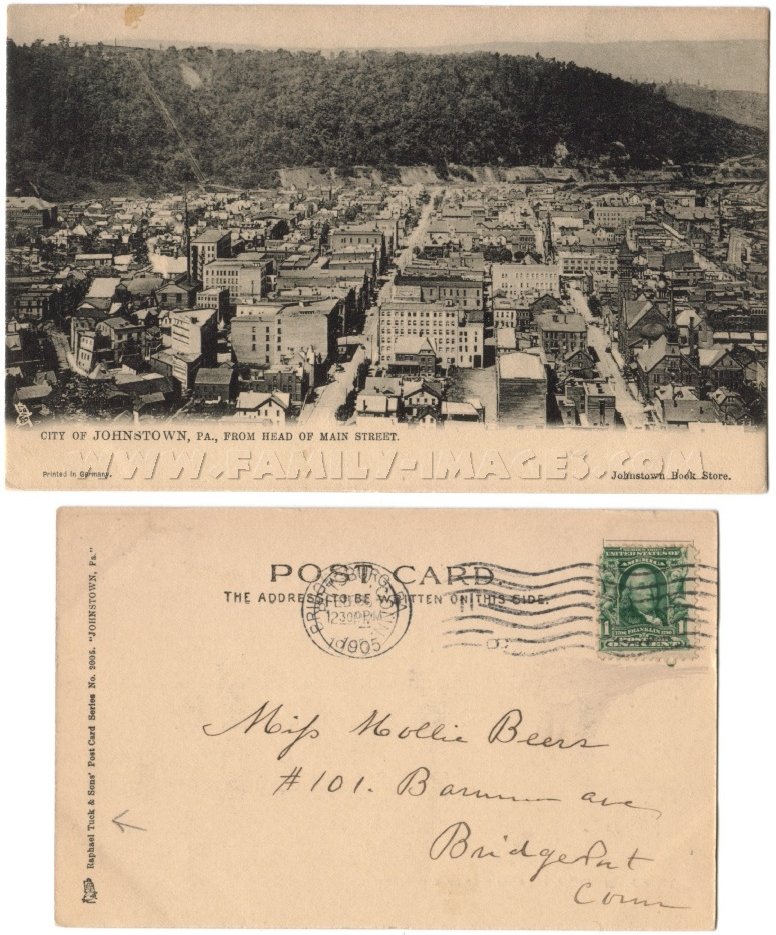 CITY OF JOHNSTOWN, PA., FROM HEAD OF MAIN STREET.
WWW.FAMILY-IMAGES.COM
Printed in Germany.
Johnstown Book Store.
POST CARD.
THE ADDRESS TO BE WRITTEN ON THIS SIDE.
FEB
1230PM
1905
SERIES 1902
UNITED STATES OF
AMERICA
1 FRANKLIN 1
POSTAGE
ONE CENT
Miss Mollie Beers
#101. Barnum ave
Bridgeport
Conn
Raphael Tuck & Sons' Post Card Series No. 2005. "JOHNSTOWN, Pa."